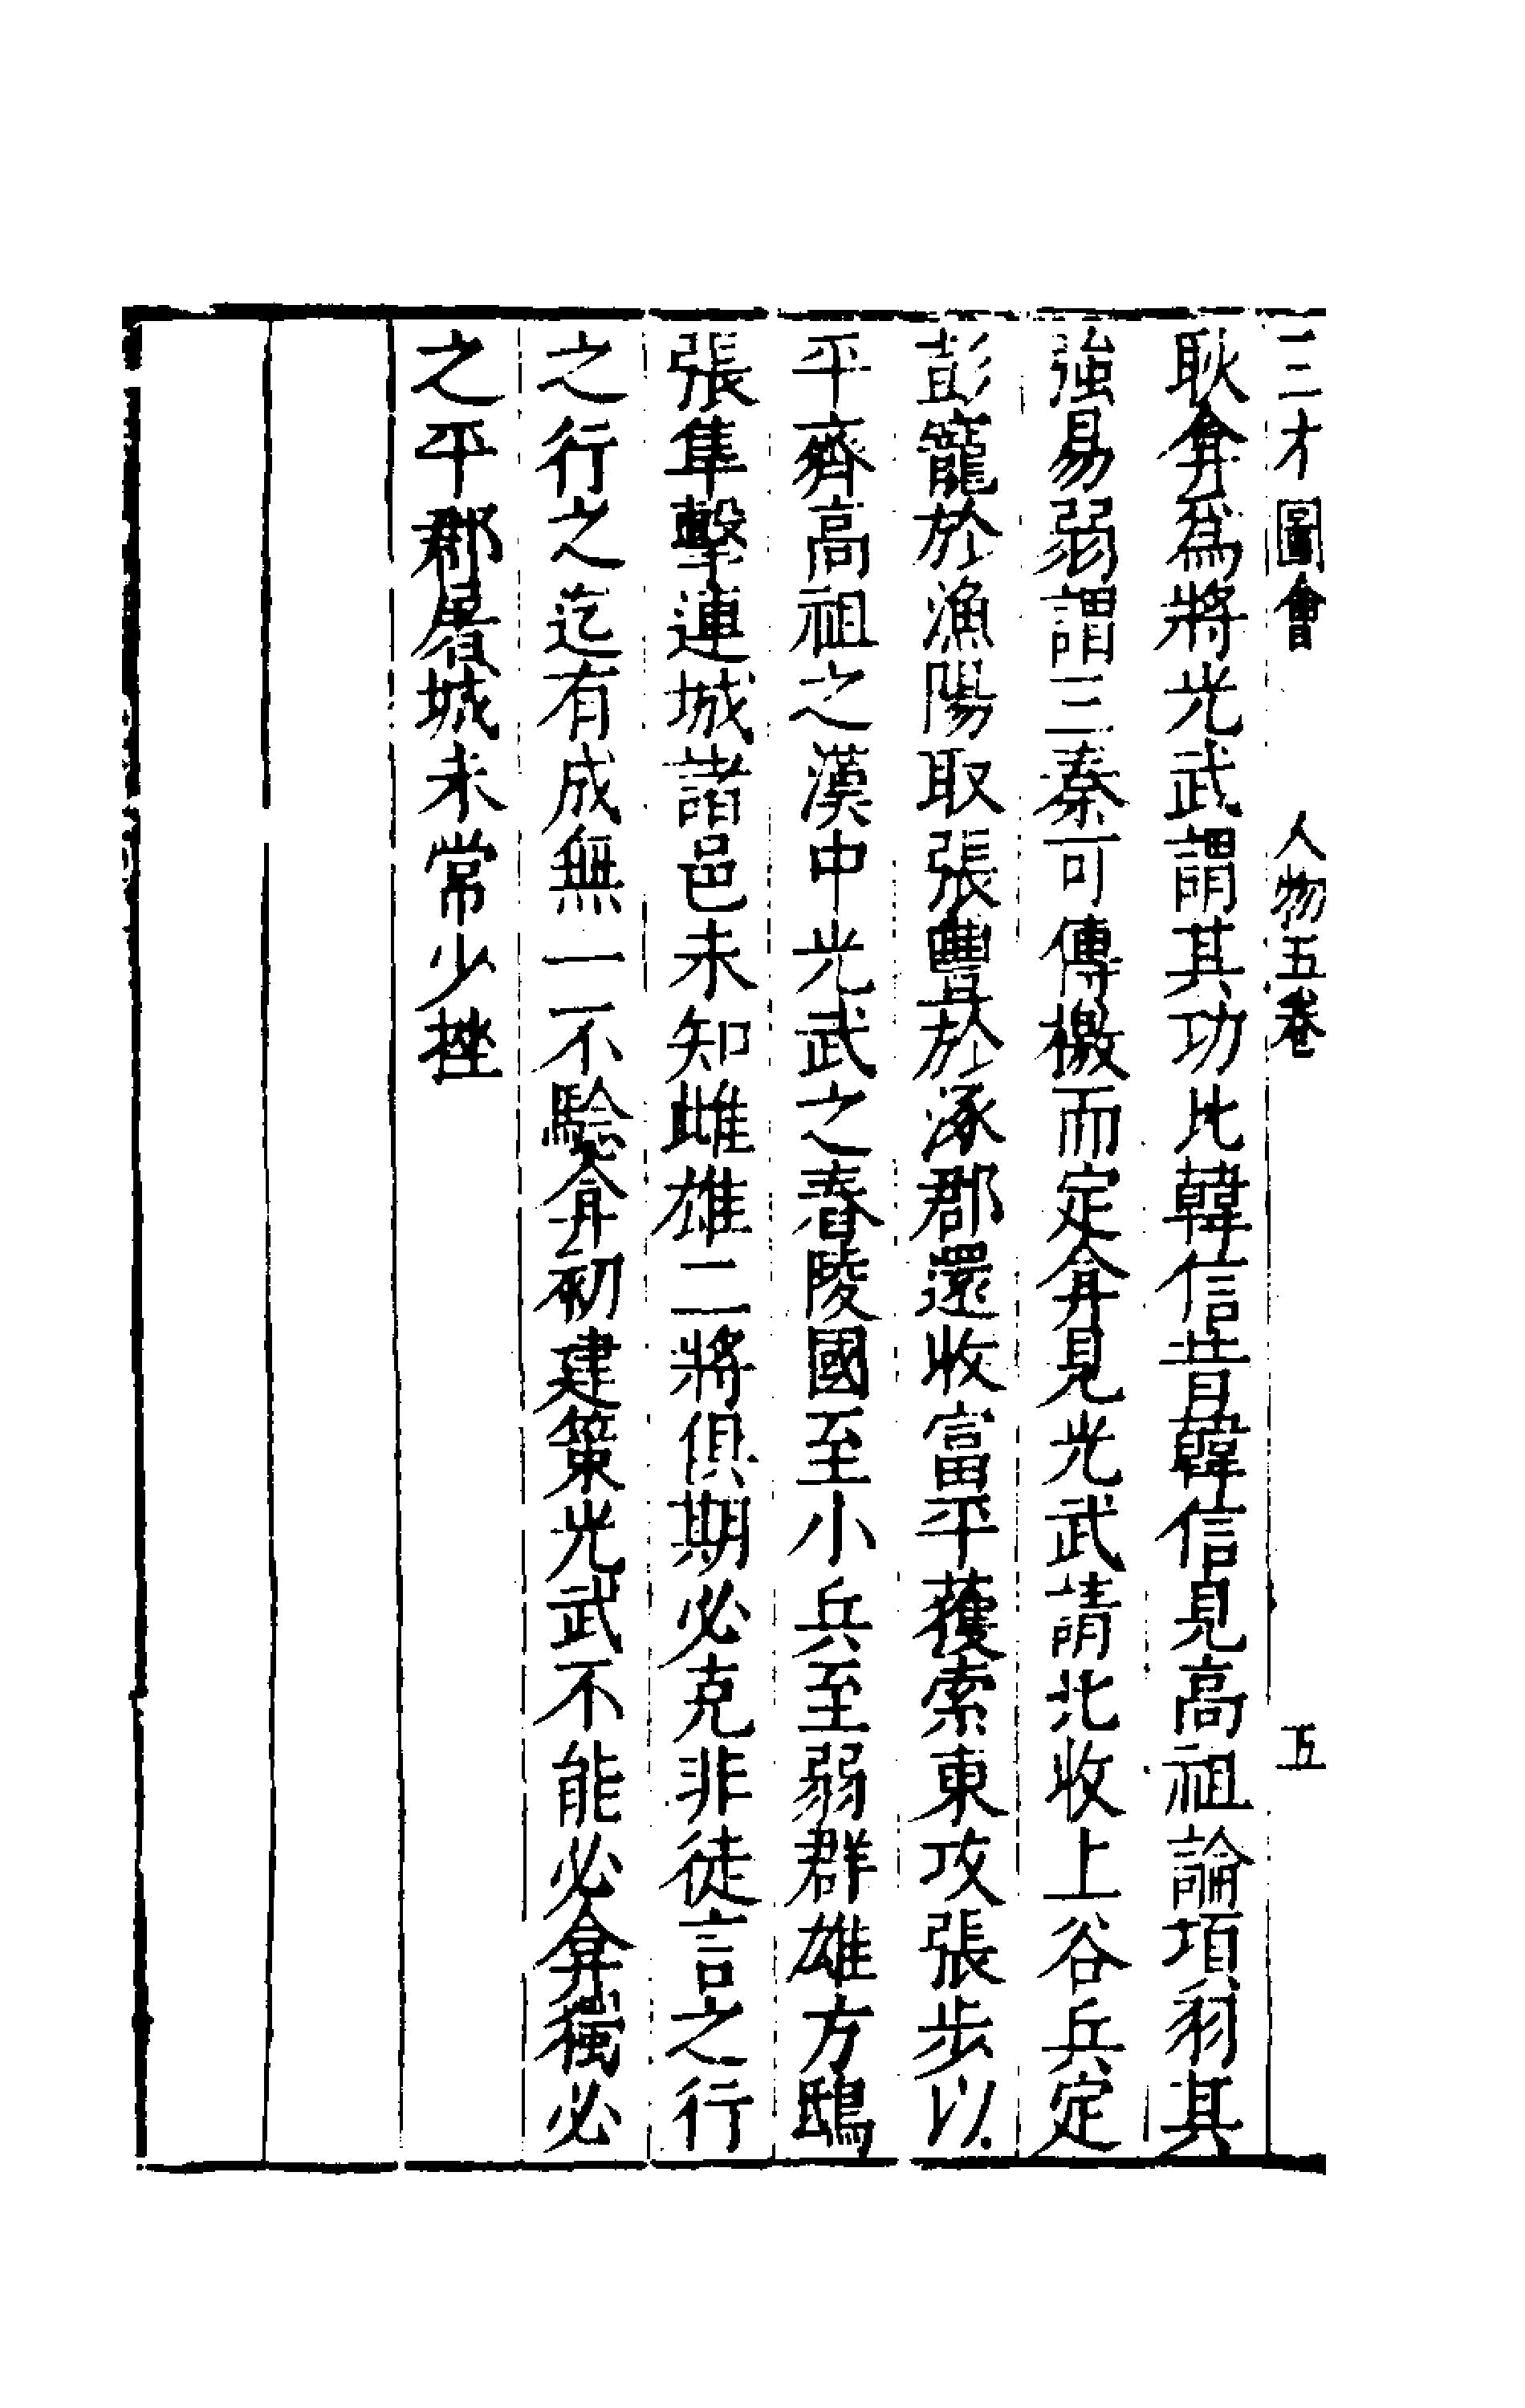 三才圖會 人物五卷 五
耿弇爲將光武謂其功比韓信昔韓信見高祖論項羽其
強易弱謂三秦可傳檄而定弇見光武請北收上谷兵定
彭寵於漁陽取張豐於涿郡還收富平獲索東攻張步以
平齊高祖之漢中光武之舂陵國至小兵至弱群雄方鴟
張隼擊連城諸邑未知雌雄二將俱期必克非徒言之行
之行之迄有成無一不驗弇初建策光武不能必弇獨必
之平郡屠城未常少挫